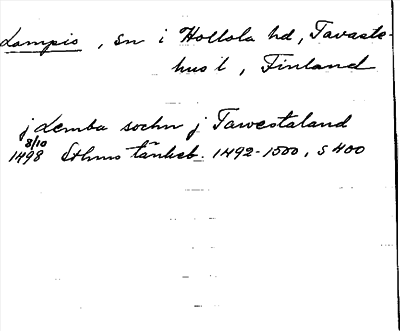 Lampis, sn i Hollola hd, Tavaste-
hus l, Finland
j Lemba sochn j Tawestaland
8/10
1498 Sthms tänkeb. 1492-1500, s 400